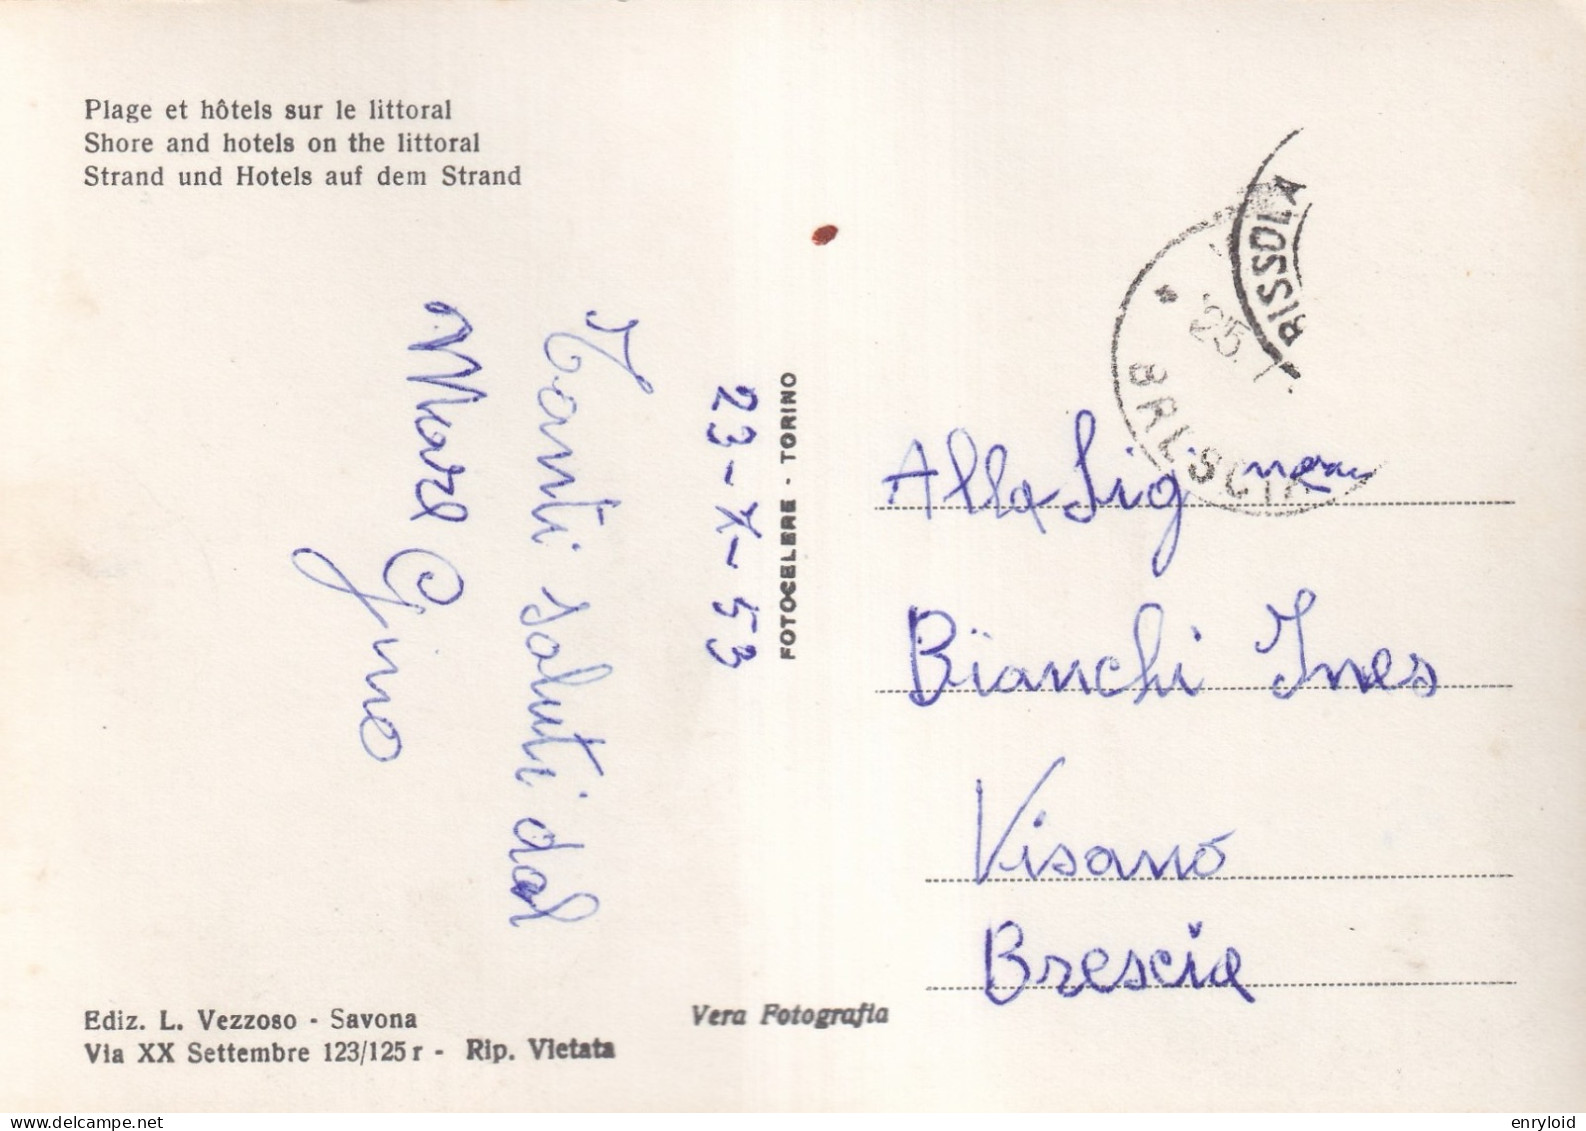 Plage et hôtels sur le littoral
Shore and hotels on the littoral
Strand und Hotels auf dem Strand
23-X-53
Tanti saluti dal
Mare Gino
FOTOCELERE - TORINO
RISSOLA
25.
BRESCIA
Alla Sig
Bianchi Ines
Visano
Brescia
Ediz. L. Vezzoso - Savona
Via XX Settembre 123/125 r - Rip. Vietata
Vera Fotografia
enryloid